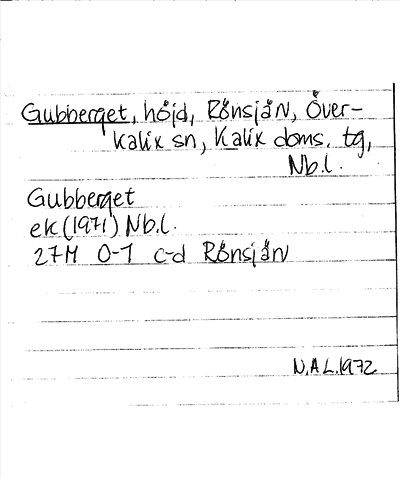 Gubberget, höjd, Rönsjån, Över-
Kalix sn, Kalix doms. tg,
Nb.l.
Gubberget
ek (1971) Nb.l.
27M 0-1 c-d Rönsjån
N.A L.1972